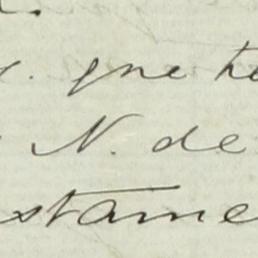 que
N. de
stame